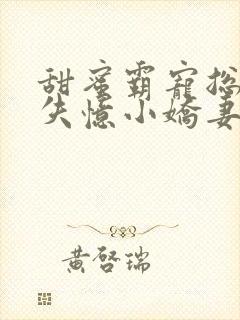 甜蜜霸寵總
失憶小嬌妻
黃啓瑞